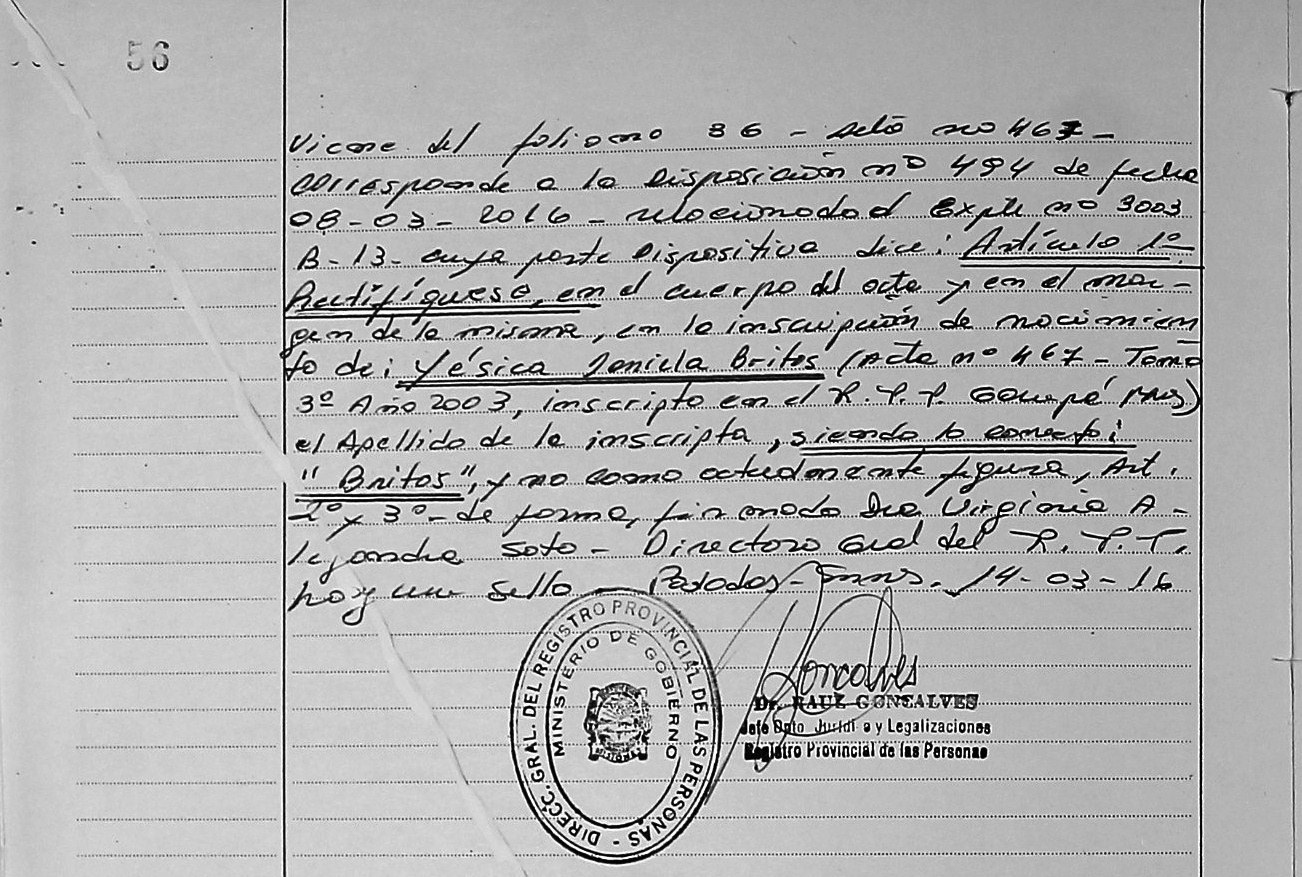 56
Viene del folio no 36 - Acta no 467 -
corresponde a la Disposición nº 494 de fecha
08-03-2016 - relacionado al Expte nº 3003
B-13- cuya parte Dispositiva dice: Artículo 1º
Rectifíquese, en el cuerpo del acta y en el mar-
gen de la misma, en la inscripción de nacimien
to de: Yésica Daniela Britos (Acta nº 467 - Tomo
3º Año 2003, inscripto en el R.P.P. Garupá Mns)
el Apellido de la inscripta, siendo lo correcto:
"Britos", y no como actualmente figura, Art.
2º y 3º - de forma, firmado Dra Virginia A-
lejandra Soto - Directora Gral del R.P.P.
hay un sello - Posadas - Mns. 14-03-16
DIRECC. GRAL. DEL REGISTRO PROVINCIAL DE LAS PERSONAS -
MINISTERIO DE GOBIERNO
Goncalves
Dr. RAUL GONCALVES
Jefe Dpto Jurídico y Legalizaciones
Registro Provincial de las Personas